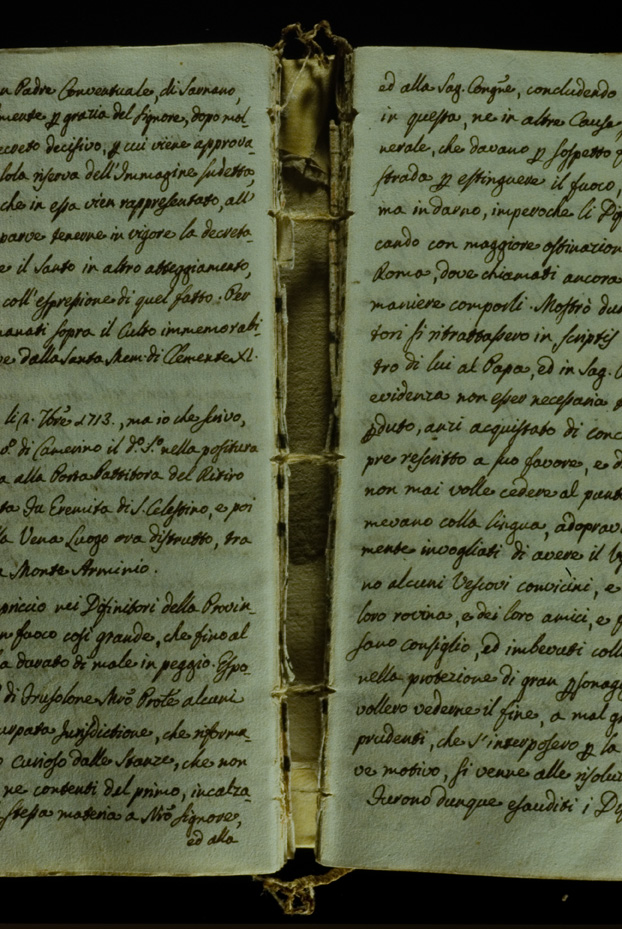 n Padre Conventuale, di Sarnano,
mente ꝑ grazia del Signore, dopo mol-
ecreto decisivo, ꝑ cui viene approva-
lola riserva dell'Immagine sudetta,
che in essa vien rappresentato, all'
parve tenerne in vigore la decreta-
e il Santo in altro atteggiamento,
coll'espressione di quel fatto. Per
manati sopra il Culto immemorabi-
ve dalla Santa Mem: di Clemente XI.
li 7bre 1713., ma io che scrivo,
vo. di Camerino il do. So. nella positura
a alla Porta Battitora del Ritiro
ta da Eremita di S. Celestino, e poi
la Vena Luogo ora distrutto, tra
a Monte Arminio.
priccio nei Difinitori della Provin-
n fuoco così grande, che fino al
a durato di male in peggio. Espo-
di Trusolone Mro Prote alcuni
urpata Jurisdictione, che riforma-
o Curioso dalle Stanze, che non
ne contenti del primo, incalza-
stessa materia a Nro Signore,
ed alla
ed alla Sag. Congne, concludendo
in questa, ne in altre Cause
nerale, che davano ꝑ sospetto
strada ꝑ estinguere il fuoco,
ma indarno, imperoche li Dif
cando con maggiore ostinazion
Roma, dove chiamati ancora
maniere comporli. Mostrò du
tori si ritrattassero in scriptis
tro di lui al Papa, ed in Sag. C
evidenza non esser necessaria
ꝑduto, anzi acquistato di conc
pre rescritto a suo favore, e d
non mai volle cedere al punt
mevano colla lingua, adoprav
mente invogliati di avere il V
no alcuni Vescovi convicini, e
loro rovina, e dei loro amici, e
sano consiglio, ed imbevuti coll
nella protezione di gran ꝑsonag
vollero vederne il fine, a mal g
prudenti, che s'interposero ꝑ la
ve motivo, si venne alle risolu
Furono dunque esauditi i Di